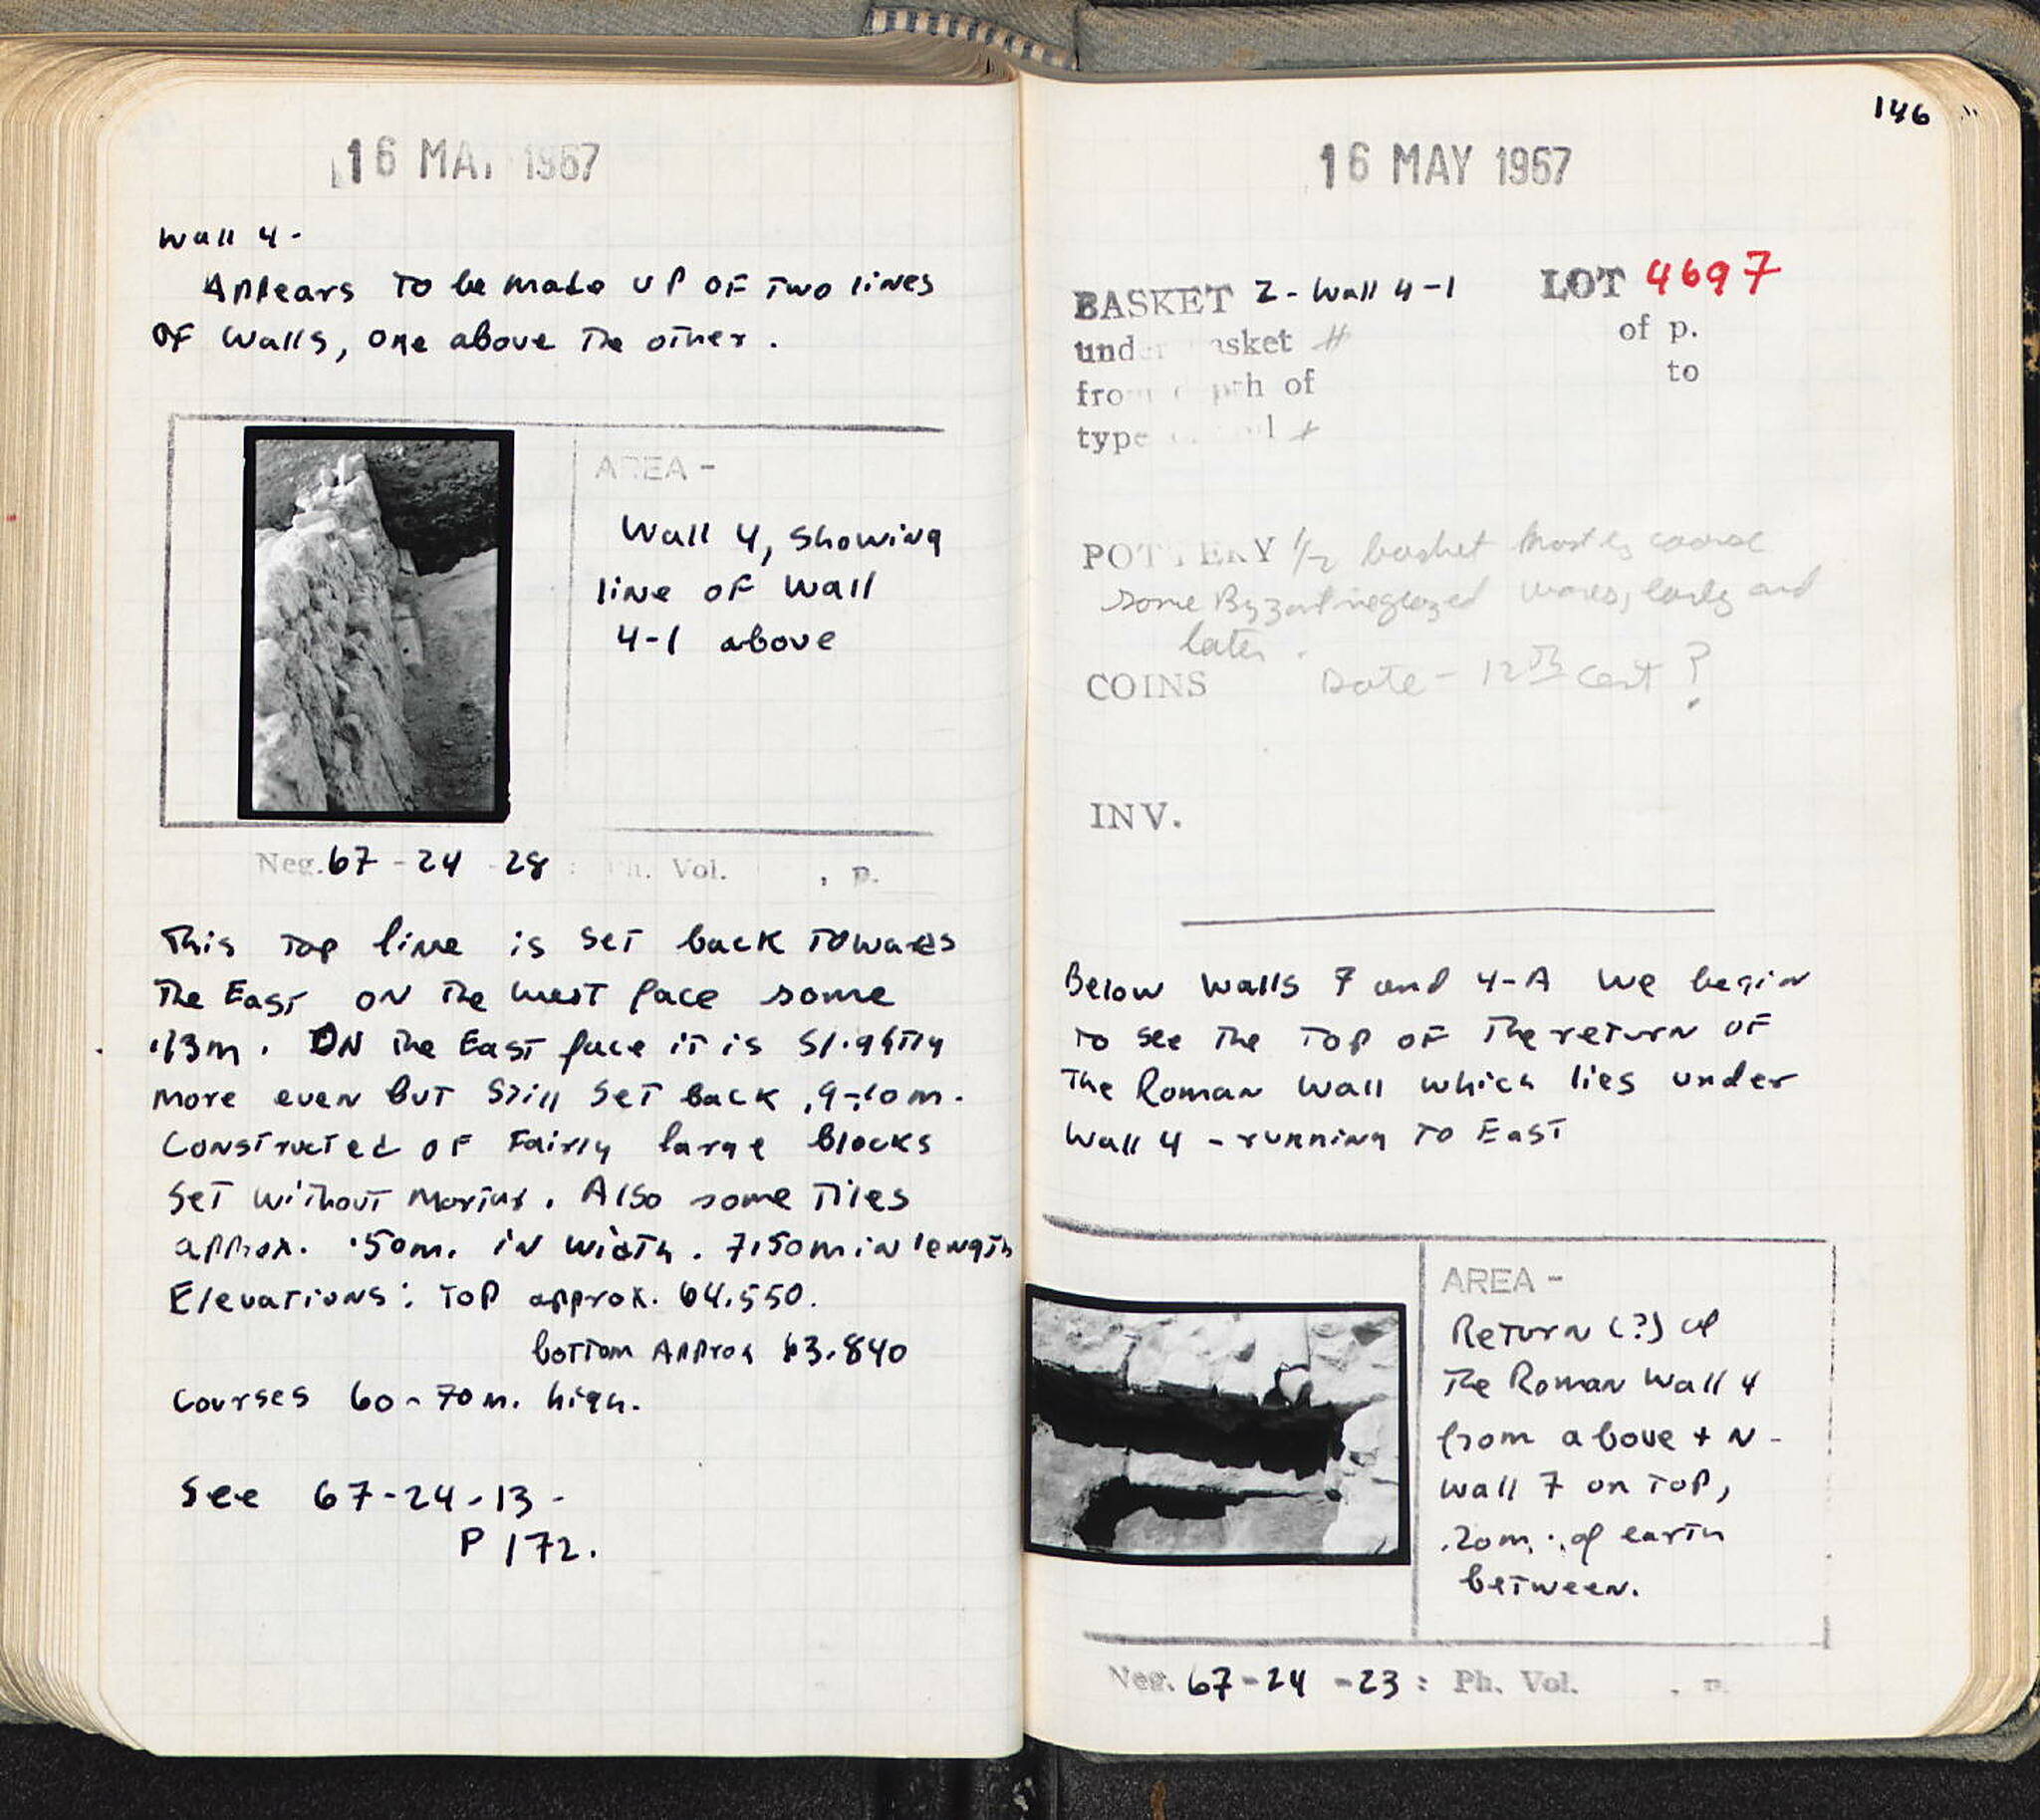 16 MAY 1967
Wall 4-
Appears to be made up of two lines
of walls, one above the other.
AREA -
Wall 4, showing
line of wall
4-1 above
Neg. 67-24-28 : Ph. Vol. , p.
This top line is set back towards
the East on the west face some
.13m. On the East face it is slightly
more even but still set back .9-.10m.
Constructed of fairly large blocks
set without mortar. Also some tiles
approx. .50m. in width. 7.50m in length
Elevations: top approx. 64.550.
bottom approx 63.840
courses 60-70m. high.
See 67-24-13-
P 172.
146
16 MAY 1967
BASKET 2-Wall 4-1 LOT 4697
under basket # of p.
from depth of to
type of soil
POTTERY 1/2 basket mostly coarse
some Byzantine glazed wares, early and
later.
COINS Date - 12th cent ?
INV.
Below walls 7 and 4-A we begin
to see the top of the return of
the Roman wall which lies under
wall 4 - running to East
AREA -
Return (?) of
the Roman Wall 4
from above + N-
wall 7 on top,
.20m. of earth
between.
Neg. 67-24-23 : Ph. Vol. , p.